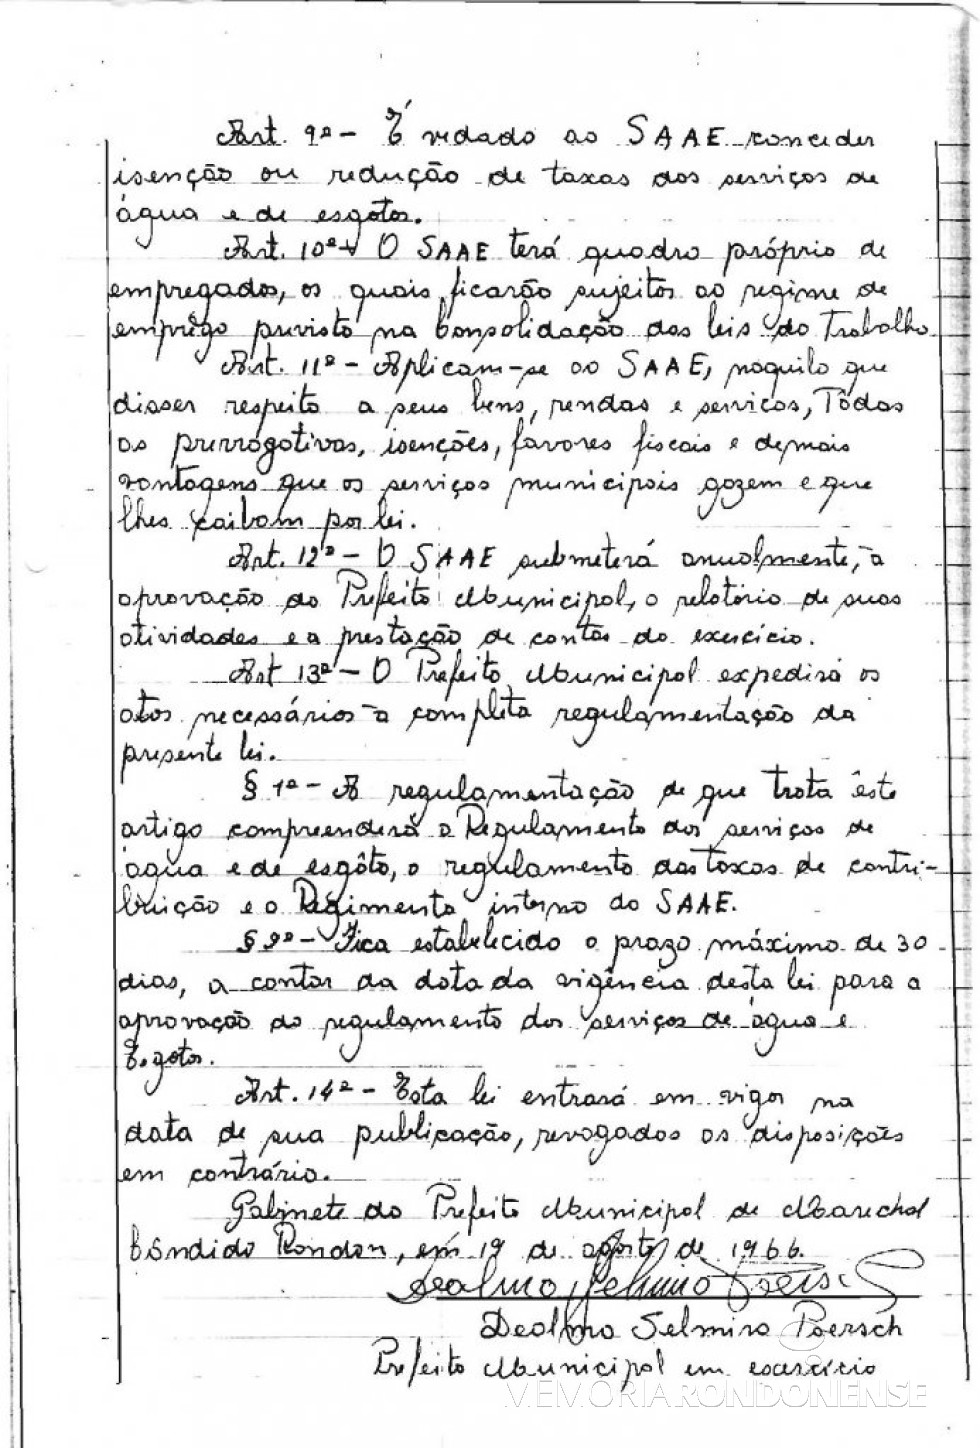 Art. 9º - É vedado ao SAAE conceder
isenção ou redução de taxas dos serviços de
água e de esgotos.
Art. 10º - O SAAE terá quadro próprio de
empregados, os quais ficarão sujeitos ao regime de
emprêgo previsto na Consolidação das leis do Trabalho
Art. 11º - Aplicam-se ao SAAE, naquilo que
disser respeito a seus bens, rendas e serviços, Tôdas
as prerrogativas, isenções, favores fiscais e demais
vantagens que os serviços municipais gozem e que
lhes caibam por lei.
Art. 12º - O SAAE submeterá anualmente, a
aprovação do Prefeito Municipal, o relatório de suas
atividades e a prestação de contas do exercício.
Art 13º - O Prefeito Municipal expedirá os
atos necessários a completa regulamentação da
presente lei.
§ 1º - A regulamentação de que trata êste
artigo compreenderá o Regulamento dos serviços de
água e de esgôto, o regulamento das taxas de contri-
buição e o Regimento interno do SAAE.
§ 2º - Fica estabelecido o prazo máximo de 30
dias, a contar da data da vigência desta lei para a
aprovação do regulamento dos serviços de água e
Esgotos.
Art. 14º - Esta lei entrará em vigor na
data de sua publicação, revogados as disposições
em contrário.
Gabinete do Prefeito Municipal de Marechal
Cândido Rondon, em 19 de agosto de 1966.
Dealmo Selmiro Poersch
Dealmo Selmiro Poersch
Prefeito Municipal em exercício
MEMÓRIA RONDONENSE